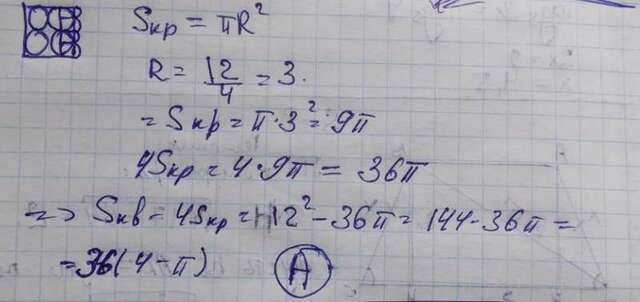 Sкр = πR²
R = 12/4 = 3.
= Sкр = π·3² = 9π
4Sкр = 4·9π = 36π
=> Sкв - 4Sкр = 12² - 36π = 144 - 36π =
= 36(4-π) A